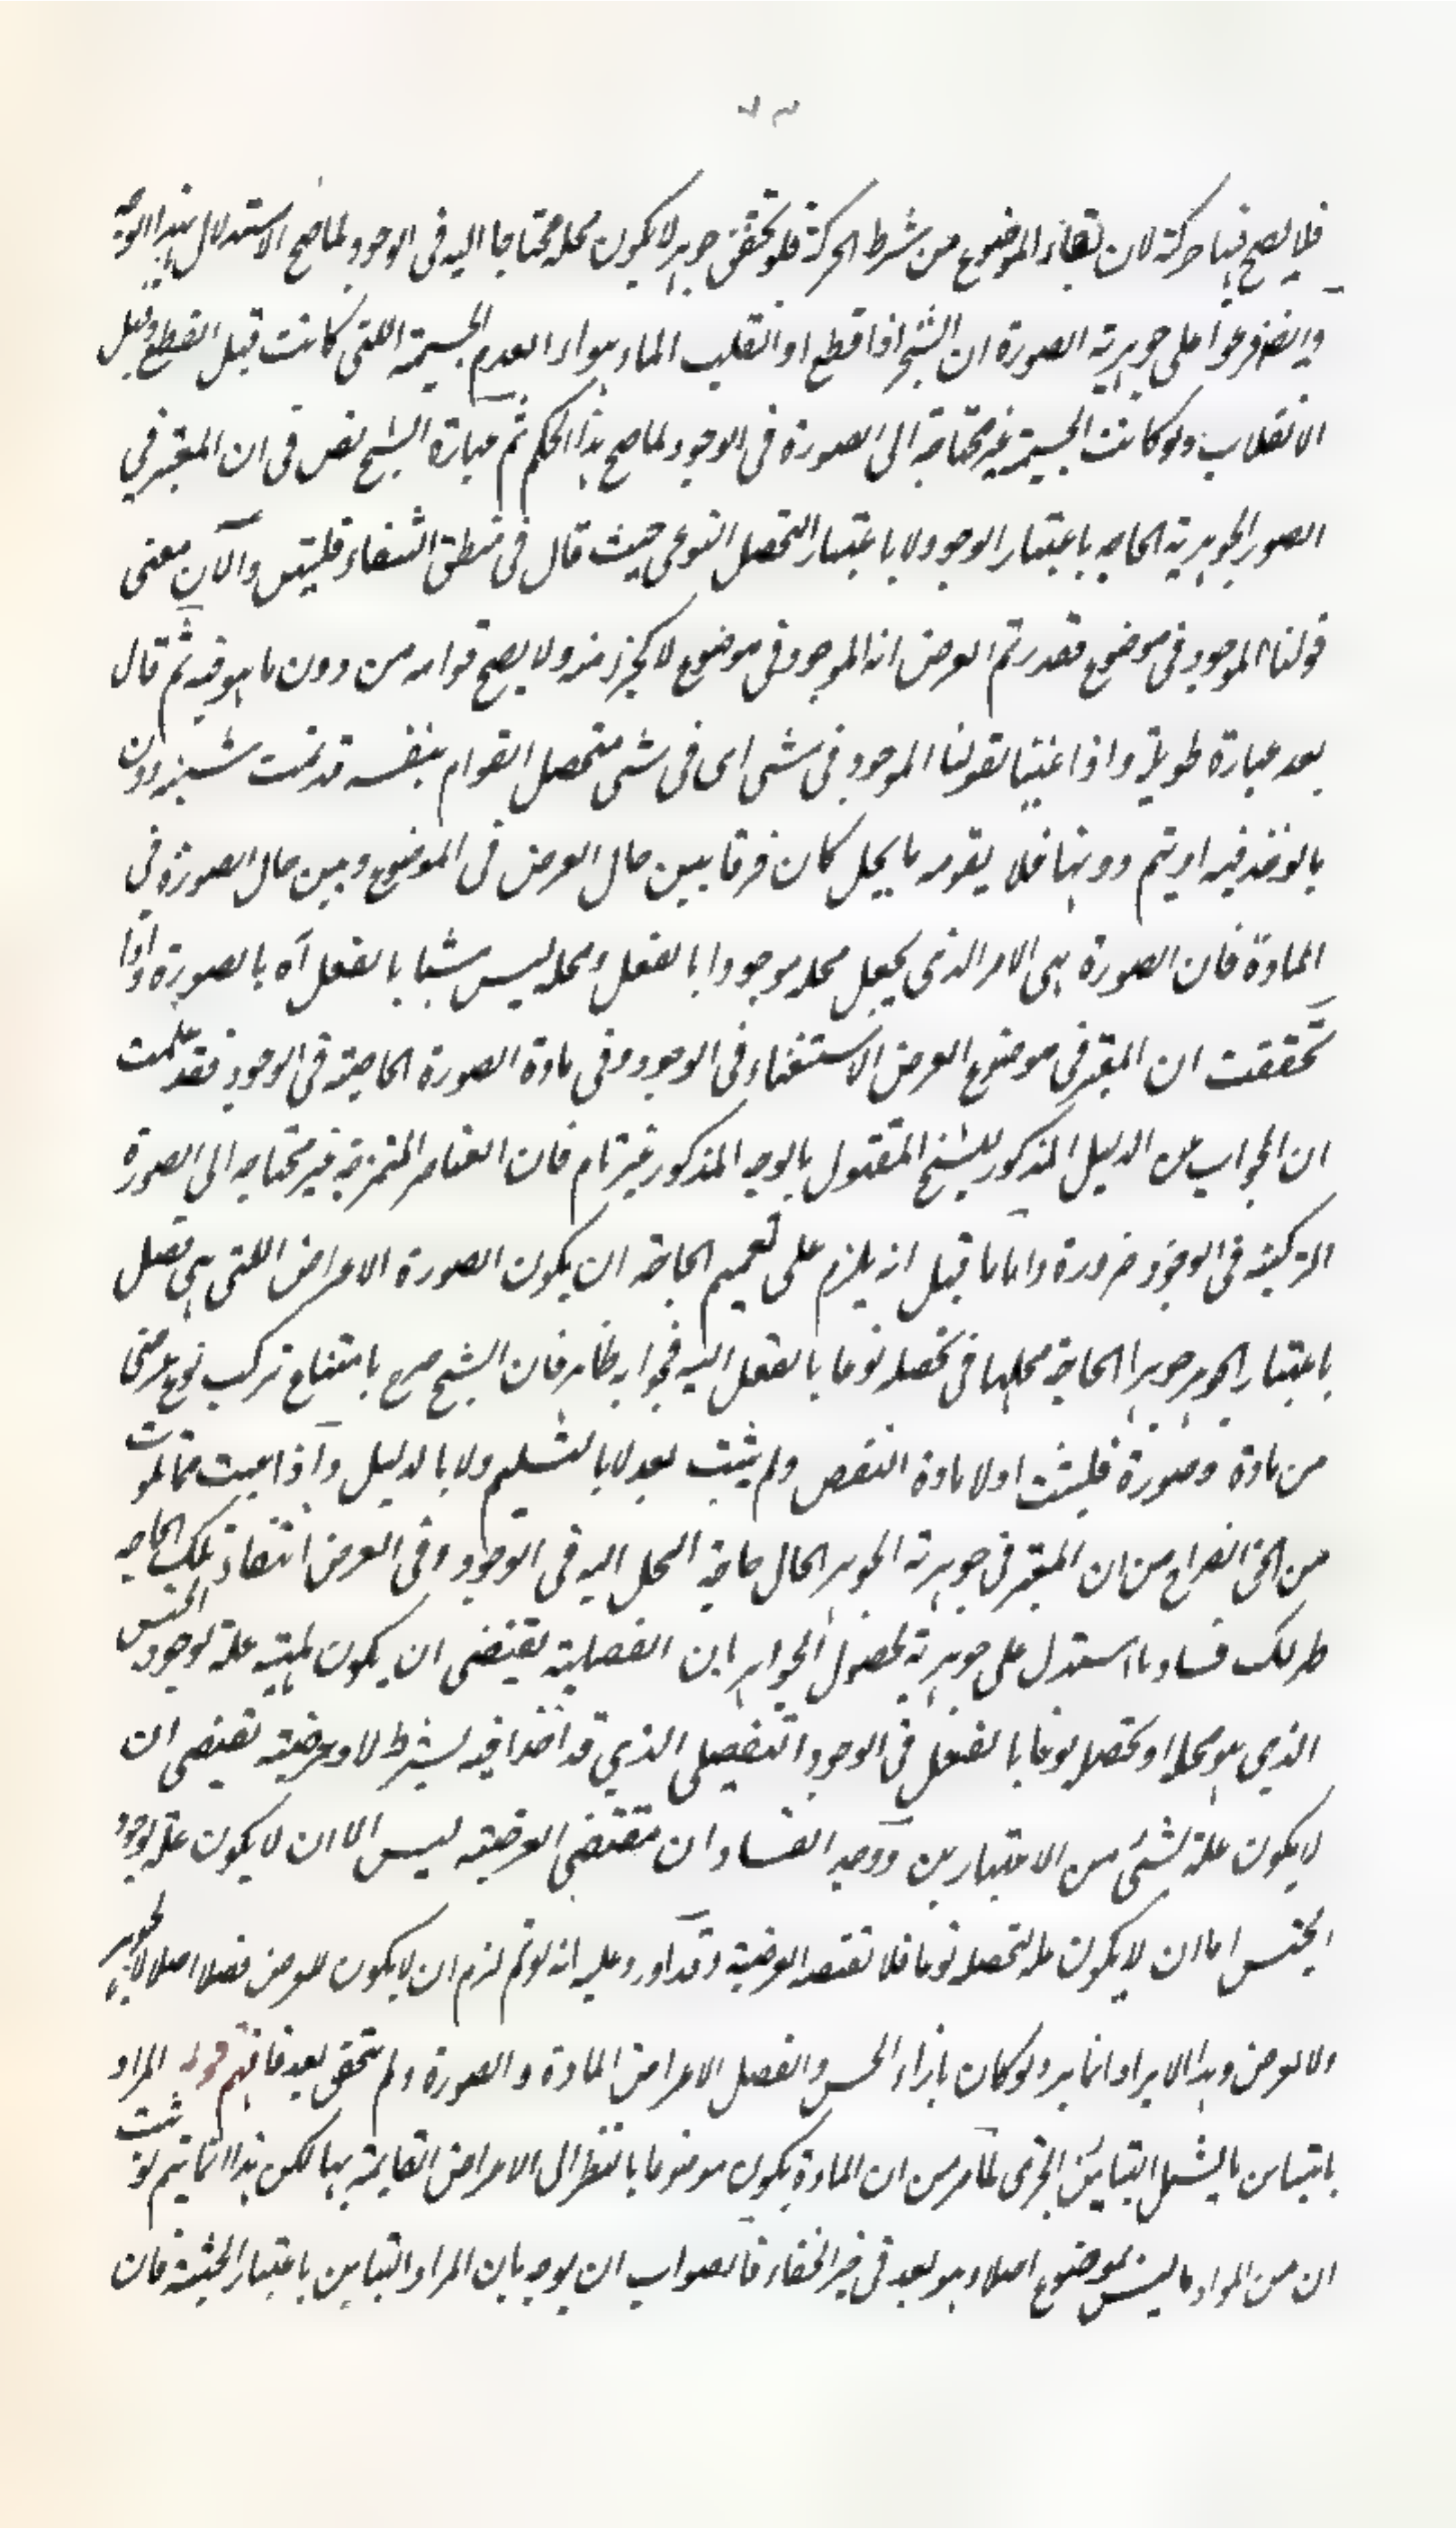 فلا يصح فيها حركة لان بقاء الموضوع من شرط الحركة فلو تحقق جوهر لا يكون محله محتاجا اليه فى الوجود لما صح الاستدلال بهذا الوجه
وايضا فرعوا على جوهرية الصورة ان الشجر اذا قطع او انقلب الماء هواء انعدم الجسمية اللتى كانت قبل القطع وقبل
الانقلاب ولو كانت الجسمية غير محتاجة الى الصورة فى الوجود لما صح هذا الحكم ثم عبارة الشيخ نص فى ان المعتبر في
الصور الجوهرية الحاجه باعتبار الوجود لا باعتبار التحصل النوعى حيث قال فى منطق الشفاء قليتس والآن معنى
قولنا الموجود فى موضوع فقد رسم العرض انه الموجود فى موضوع لا كجزء منه ولا يصح قوامه من دون ما هو فيه ثم قال
بعد عبارة طويلة واذا عنينا بقولنا الموجود فى شى اى فى شى متحصل القوام بنفسه قد تمت شيئيته دون
ما يوجد فيه او يتم دونها فلا يقومه ما يحل كان فرقا بين حال العرض فى الموضوع وبين حال الصورة في
المادة فان الصورة هى الامر الذى يجعل محله موجودا بالفعل ومحله ليس شيا بالفعل آه بالصورة واذا
تحققت ان المعتبر فى موضوع العرض الاستغناء فى الوجود وفى مادة الصورة الحاجة فى الوجود فقد علمت
ان الجواب عن الدليل المذكور للشيخ المقتول بالوجه المذكور غير تام فان العناصر الممتزجة غير محتاجه الى الصورة
التركيبية فى الوجود ضرورة واما ما قيل انه يلزم على تعميم الحاجة ان يكون الصورة الاعراض اللتى هى فصل
باعتبار الجوهر جوهرا الحاجة محلها فى تحصله نوعا بالفعل اليه فجوابه ظاهر فان الشيخ صرح بامتناع تركب نوع عرضى
من مادة وصورة فليثبت اولا مادة النقض ولم يثبت بعد لا بالتسليم ولا بالدليل واذا عيت ما تلوت
من الحق الصراح من ان المعتبر فى جوهرية الجوهر الحال حاجة المحل اليه فى الوجود وفى العرض انتفاء تلك الحاجه
ظهر لك فساد ما استدل على جوهرية فصول الجواهر بان الفصلية يقتضى ان يكون لمية علة لوجود الجنس
الذي هو محلا وتحصله نوعا بالفعل فى الوجود التفصيلى الذي قد اخذا فيه بشرط لا وعرضيته تقتضى ان
لا يكون علة لشئ من الاعتبارين ووجه الفساد ان مقتضى العرضية ليس الا ان لا يكون علة لوجود
الجنس اما ان لا يكون علة لتحصله نوعا فلا تقتضيه العرضية وقد اورد عليه انه لو تم لزم ان لا يكون للعرض فصلا اصلا لا لجوهر
ولا لعرض وهذا الايراد انما يرد لو كان بازاء الجنس والفصل الاعراض المادة والصورة ولم يتحقق بعد فافهم قوله المراد
بالتباين ما يشمل التباين الجزئى لما مر من ان المادة يكون موضوعا بالنظر الى الاعراض القايمة بها لكن هذا انما يتم لو ثبت
ان من المواد ما ليس بموضوع اصلا وهو بعد فى حيز الخفاء فالصواب ان يوجه بان المراد التباين باعتبار الحيثية فان